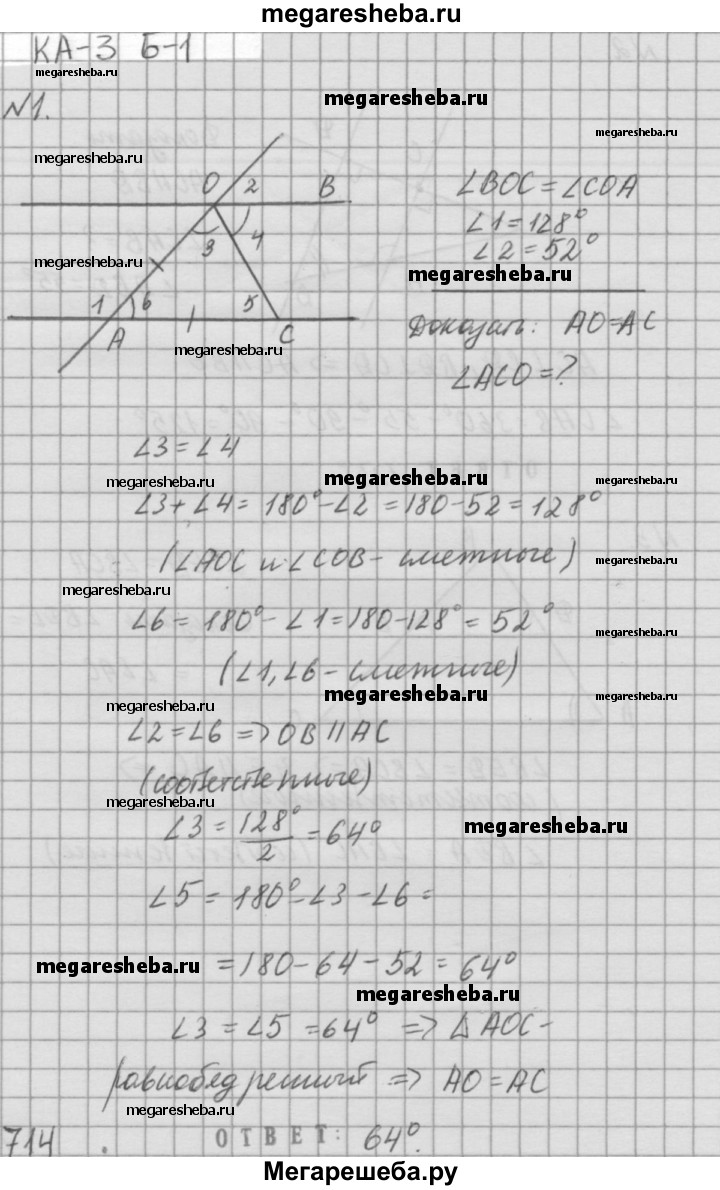 megaresheba.ru
КА-3 Б-1
megaresheba.ru
№1.
megaresheba.ru
megaresheba.ru
megaresheba.ru
O 2 B
∠BOC = ∠COA
∠1 = 128°
3 4
∠2 = 52°
megaresheba.ru
megaresheba.ru
1 6 5
A C
Доказать: AO = AC
megaresheba.ru
∠ACO = ?
∠3 = ∠4
megaresheba.ru
megaresheba.ru
megaresheba.ru
∠3 + ∠4 = 180° - ∠2 = 180 - 52 = 128°
(∠AOC и ∠COB - сметные)
megaresheba.ru
megaresheba.ru
∠6 = 180° - ∠1 = 180 - 128° = 52°
megaresheba.ru
(∠1, ∠6 - сметные)
megaresheba.ru
megaresheba.ru
megaresheba.ru
∠2 = ∠6 => OB || AC
(соответственные)
megaresheba.ru
∠3 = 128°/2 = 64°
megaresheba.ru
∠5 = 180° - ∠3 - ∠6 =
megaresheba.ru
= 180 - 64 - 52 = 64°
megaresheba.ru
∠3 = ∠5 = 64° => △AOC -
равнобедренный => AO = AC
megaresheba.ru
714 . ОТВЕТ: 64°.
Мегарешеба.ру